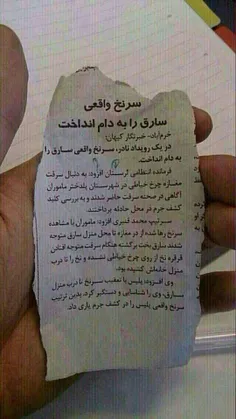 سرنخ واقعی
سارق را به دام انداخت
خرم‌آباد- خبرنگار کیهان:
در یک رویداد نادر، سرنخ واقعی سارق را
به دام انداخت.
فرمانده انتظامی لرستان افزود: به دنبال سرقت
مغازه چرخ خیاطی در شهرستان پلدختر ماموران
آگاهی در صحنه سرقت حاضر شدند و به بررسی کلید
کشف جرم در محل حادثه پرداختند.
سرتیپ محمد قنبری افزود: ماموران با مشاهده
سرنخ رها شده از در مغازه تا محل منزل سارق متوجه
شدند سارق بخت برگشته هنگام سرقت متوجه افتادن
قرقره نخ از روی چرخ خیاطی نشده و نخ را تا درب
منزل خانه‌اش کشیده بود.
وی افزود: پلیس با تعقیب سرنخ تا درب منزل
سارق، وی را شناسایی و دستگیر کرد. بدین ترتیب
سرنخ واقعی پلیس را در کشف جرم یاری داد.